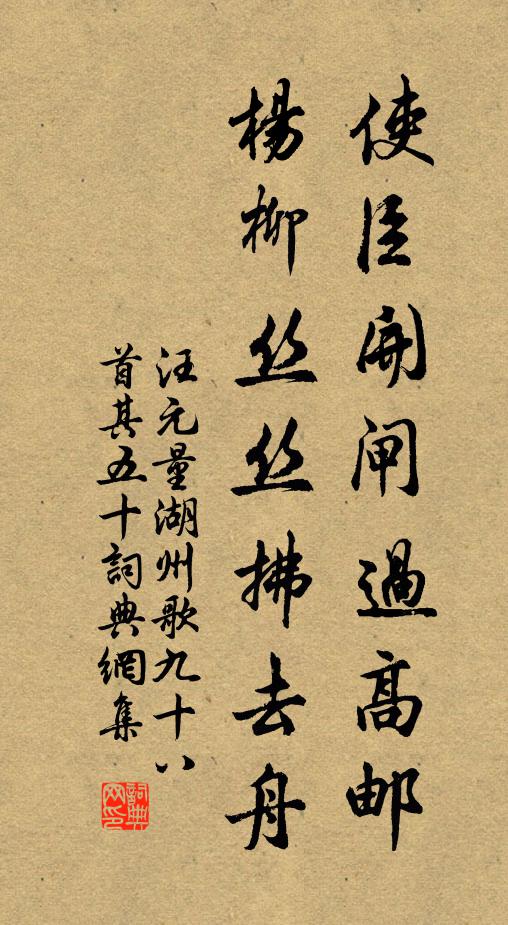 使臣開闸過高邮
楊柳丝丝拂去舟
汪元量湖州歌九十八
首其五十詞典網集
詞典网印